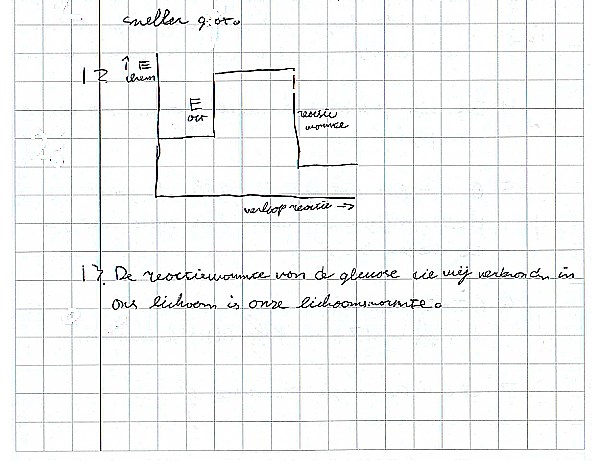 sneller g.ot.
12
↑ E
chem
E
act
reactie
warmte
verloop reactie →
13. De reactiewarmte van de glucose die wij verbranden in
ons lichaam is onze lichaamswarmte.